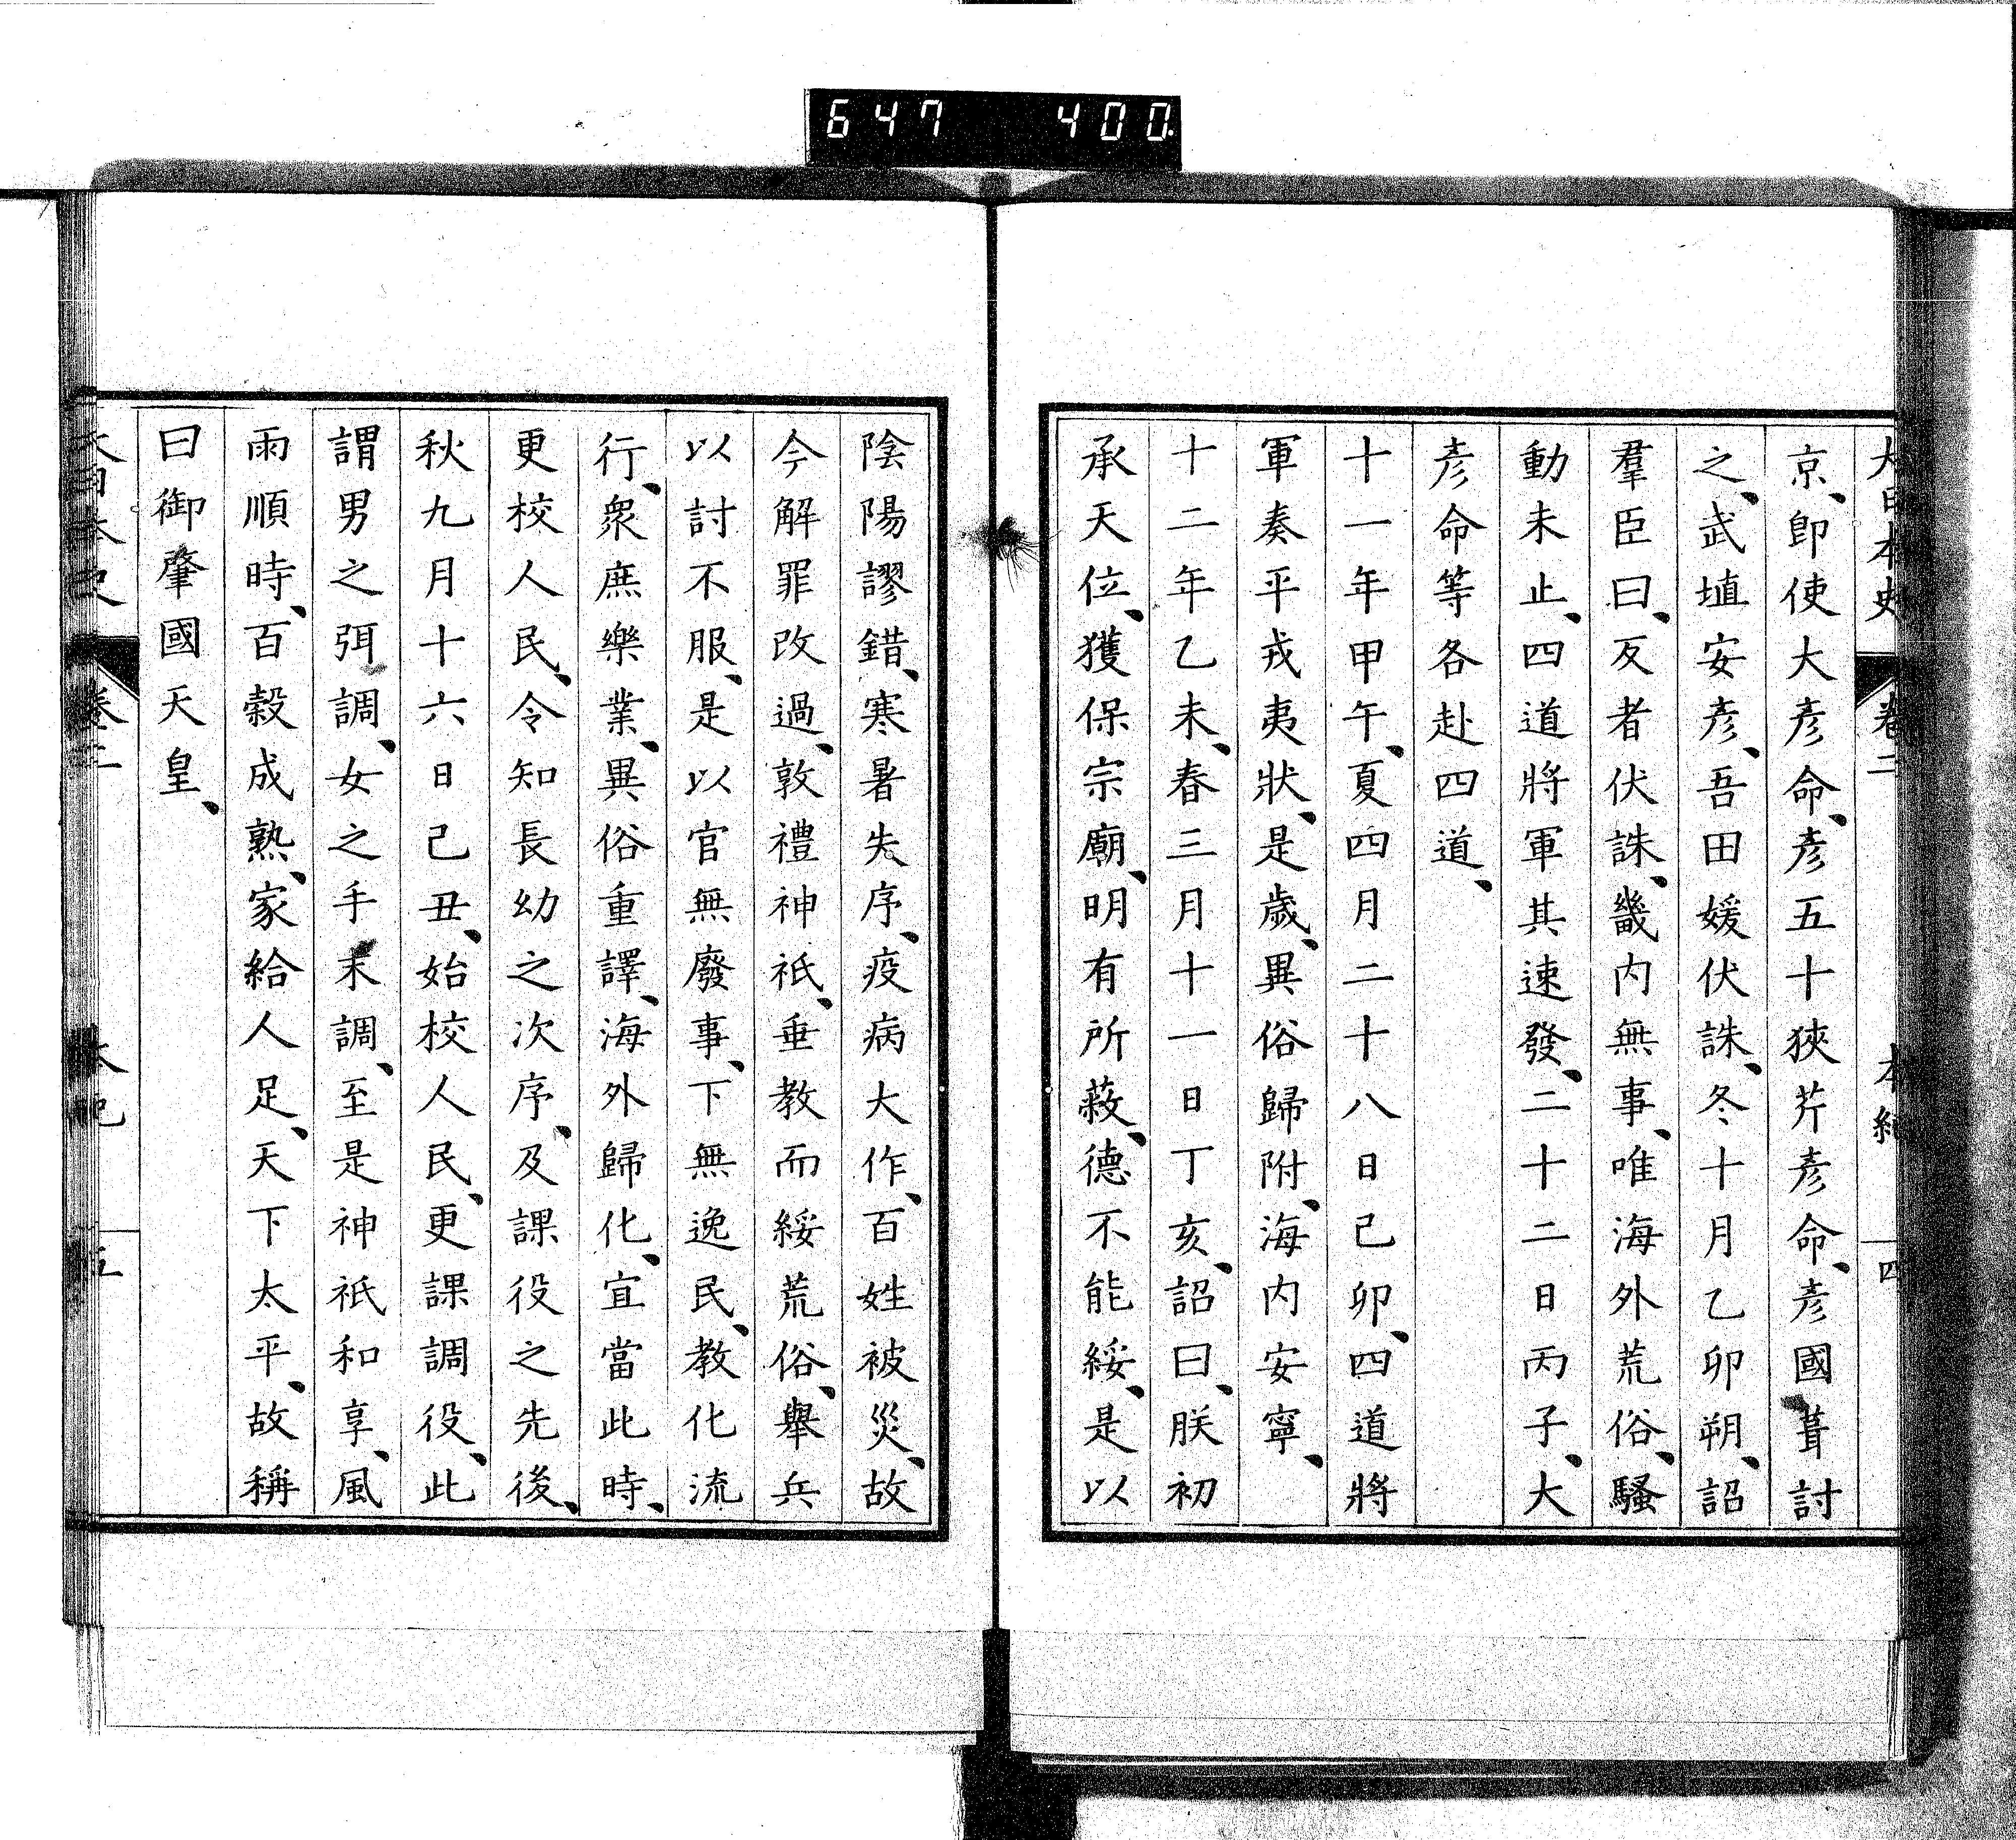 647 400
大日本史 卷二 本紀 四
京、卽使大彥命、彥五十狹芹彥命、彥國葺討
之、武埴安彥、吾田媛伏誅、冬十月乙卯朔、詔
羣臣曰、反者伏誅、畿内無事、唯海外荒俗、騷
動未止、四道將軍其速發、二十二日丙子、大
彥命等各赴四道、
十一年甲午、夏四月二十八日己卯、四道將
軍奏平戎夷狀、是歲、異俗歸附、海内安寧、
十二年乙未、春三月十一日丁亥、詔曰、朕初
承天位、獲保宗廟、明有所蔽、德不能綏、是以
陰陽謬錯、寒暑失序、疫病大作、百姓被災、故
今解罪改過、敦禮神祇、垂教而綏荒俗、舉兵
以討不服、是以官無廢事、下無逸民、教化流
行、衆庶樂業、異俗重譯、海外歸化、宜當此時、
更校人民、令知長幼之次序、及課役之先後、
秋九月十六日己丑、始校人民、更課調役、此
謂男之弭調、女之手末調、至是神祇和享、風
雨順時、百穀成熟、家給人足、天下太平、故稱
曰御肇國天皇、
大日本史 卷二 本紀 五